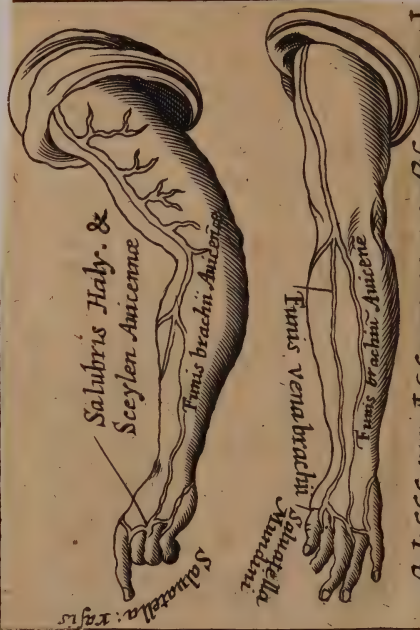 Salubris Haly. &
Sceylen Auicennæ
Funis brachii Auicenæ
Saluatella: rasis
Funis brachii Auicenē
Funis vena brachii
Saluatella
Mundini